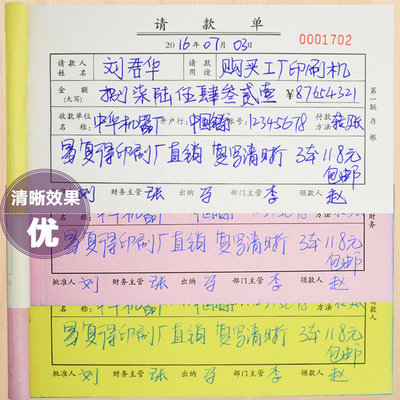 请款单
2016年07月03日 0001702
请款人姓名 刘君华 请款用途 购买工厂印刷机
金额(大写) 捌柒陆伍肆叁贰壹 ¥87654321
收款单位名称: 中华机器厂 开户行: 中国银行 帐号: 12345678 付款方法
易复得印刷厂直销 复写清晰 3本118元
包邮
刘 财务主管 张 出纳 李 部门主管 李 领款人 赵
第一联 存根
清晰效果
优
易复得印刷厂直销 复写清晰 3本118元
包邮
批准人 刘 财务主管 张 出纳 部门主管 李 领款人 赵
易复得印刷厂直销 复写清晰 3本118元
包邮
批准人 刘 财务主管 张 出纳 部门主管 李 领款人 赵